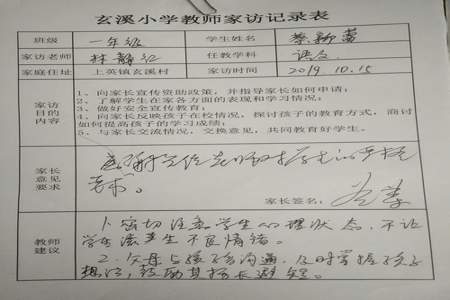 玄溪小学教师家访记录表
班级 一年级 学生姓名
家访老师 林静红 任教学科 语文
家庭住址 上英镇玄溪村 家访时间 2019.10.15
家访目的内容
1、向家长宣传资助政策，并指导家长如何申请；
2、了解学生在家各方面的表现和学习情况。
3、做好安全宣传教育；
4、向家长反映孩子在校情况，探讨孩子的教育方式，商讨
如何提高孩子的学习成绩；
5、与家长交流情况，交换意见，共同教育好学生。
家长意见要求
要求。
家长签名：
教师建议
1、密切注意学生心理状态，不让
学生滋生不良情绪。
2、父母与孩子多沟通，及时掌握孩子
想法，鼓励其扬长避短。